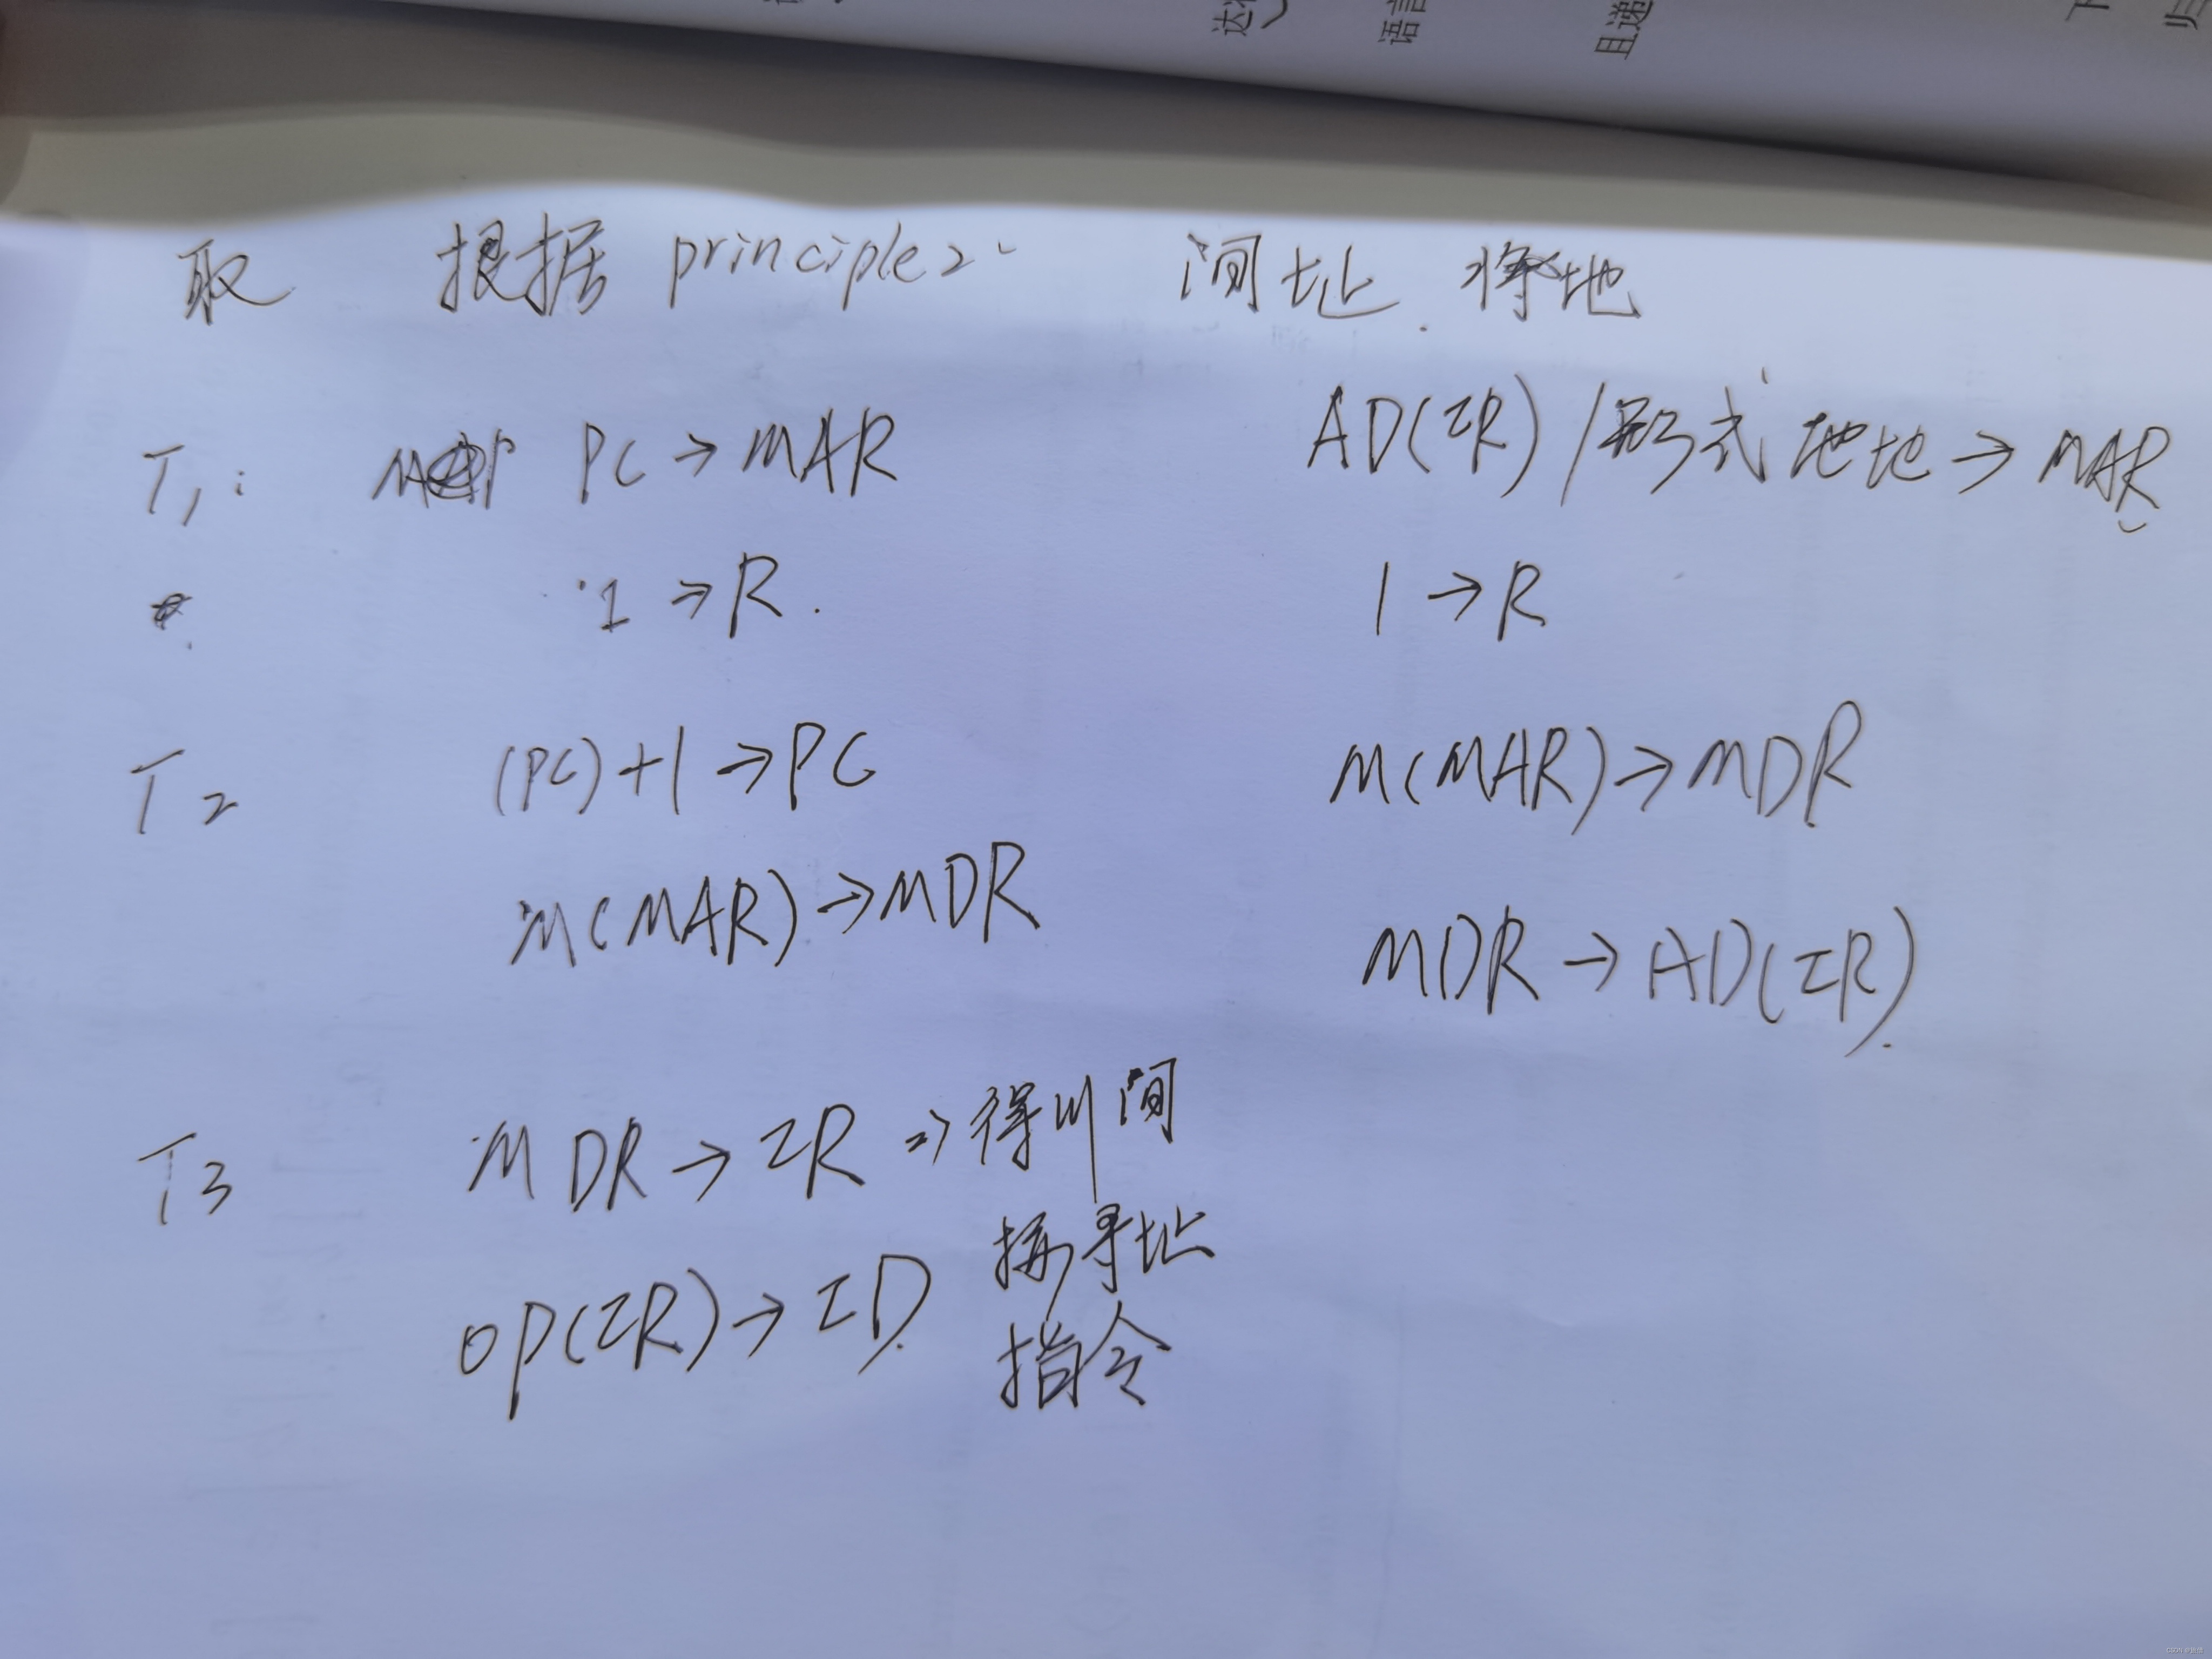 达
语言
且递
下
归
取 根据 principle2 间址. 将地
T1: PC→MAR AD(IR)/形式地地→MAR
1→R. 1→R
T2 (PC)+1→PC M(MAR)→MDR
M(MAR)→MDR MDR→AD(IR).
T3 MDR→IR ⇒得川间
寻址
OP(IR)→ID
指令